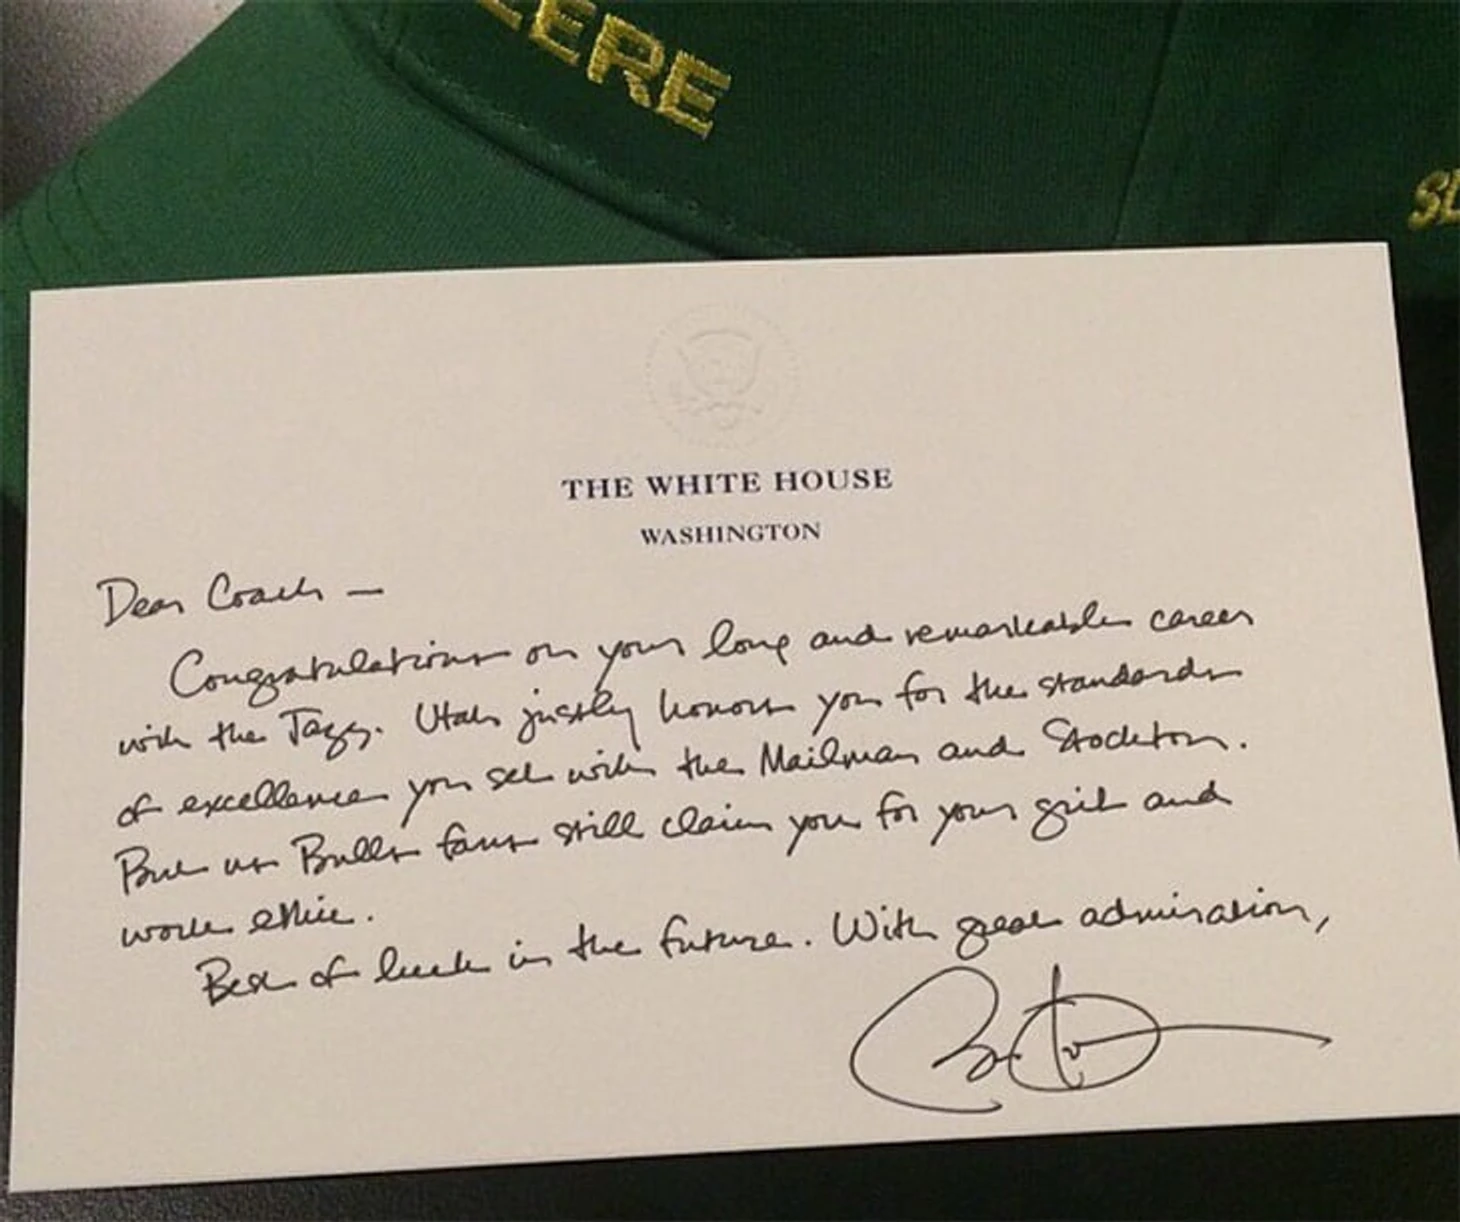 EERE
SL
THE WHITE HOUSE
WASHINGTON
Dear Coach —
Congratulations on your long and remarkable career
with the Jazz. Utah justly honors you for the standards
of excellence you set with the Mailman and Stockton.
But us Bulls fans still claim you for your grit and
work ethic.
Best of luck in the future. With great admiration,